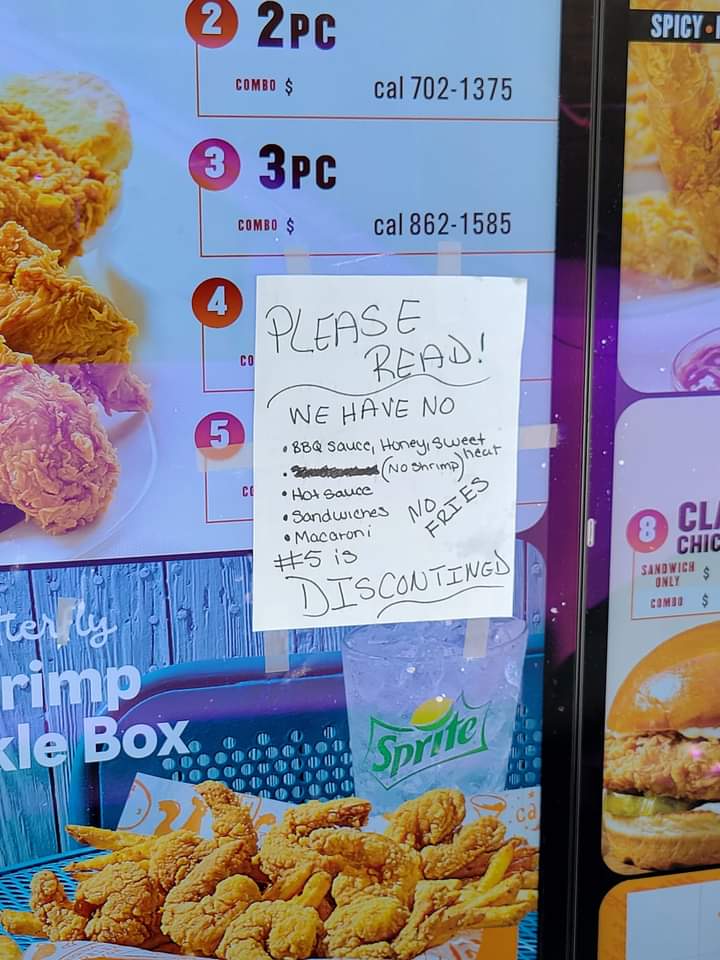 2 2PC
COMBO $ cal 702-1375
3 3PC
COMBO $ cal 862-1585
4
CO
5
CO
PLEASE
READ!
WE HAVE NO
• BBQ sauce, Honey, Sweet heat
• (No shrimp)
• Hot sauce
• Sandwiches
• Macaroni
NO
FRIES
#5 is
DISCONTINED
terfly
rimp
kle Box
Sprite
SPICY •
8 CLA
CHIC
SANDWICH
ONLY $
COMBO $